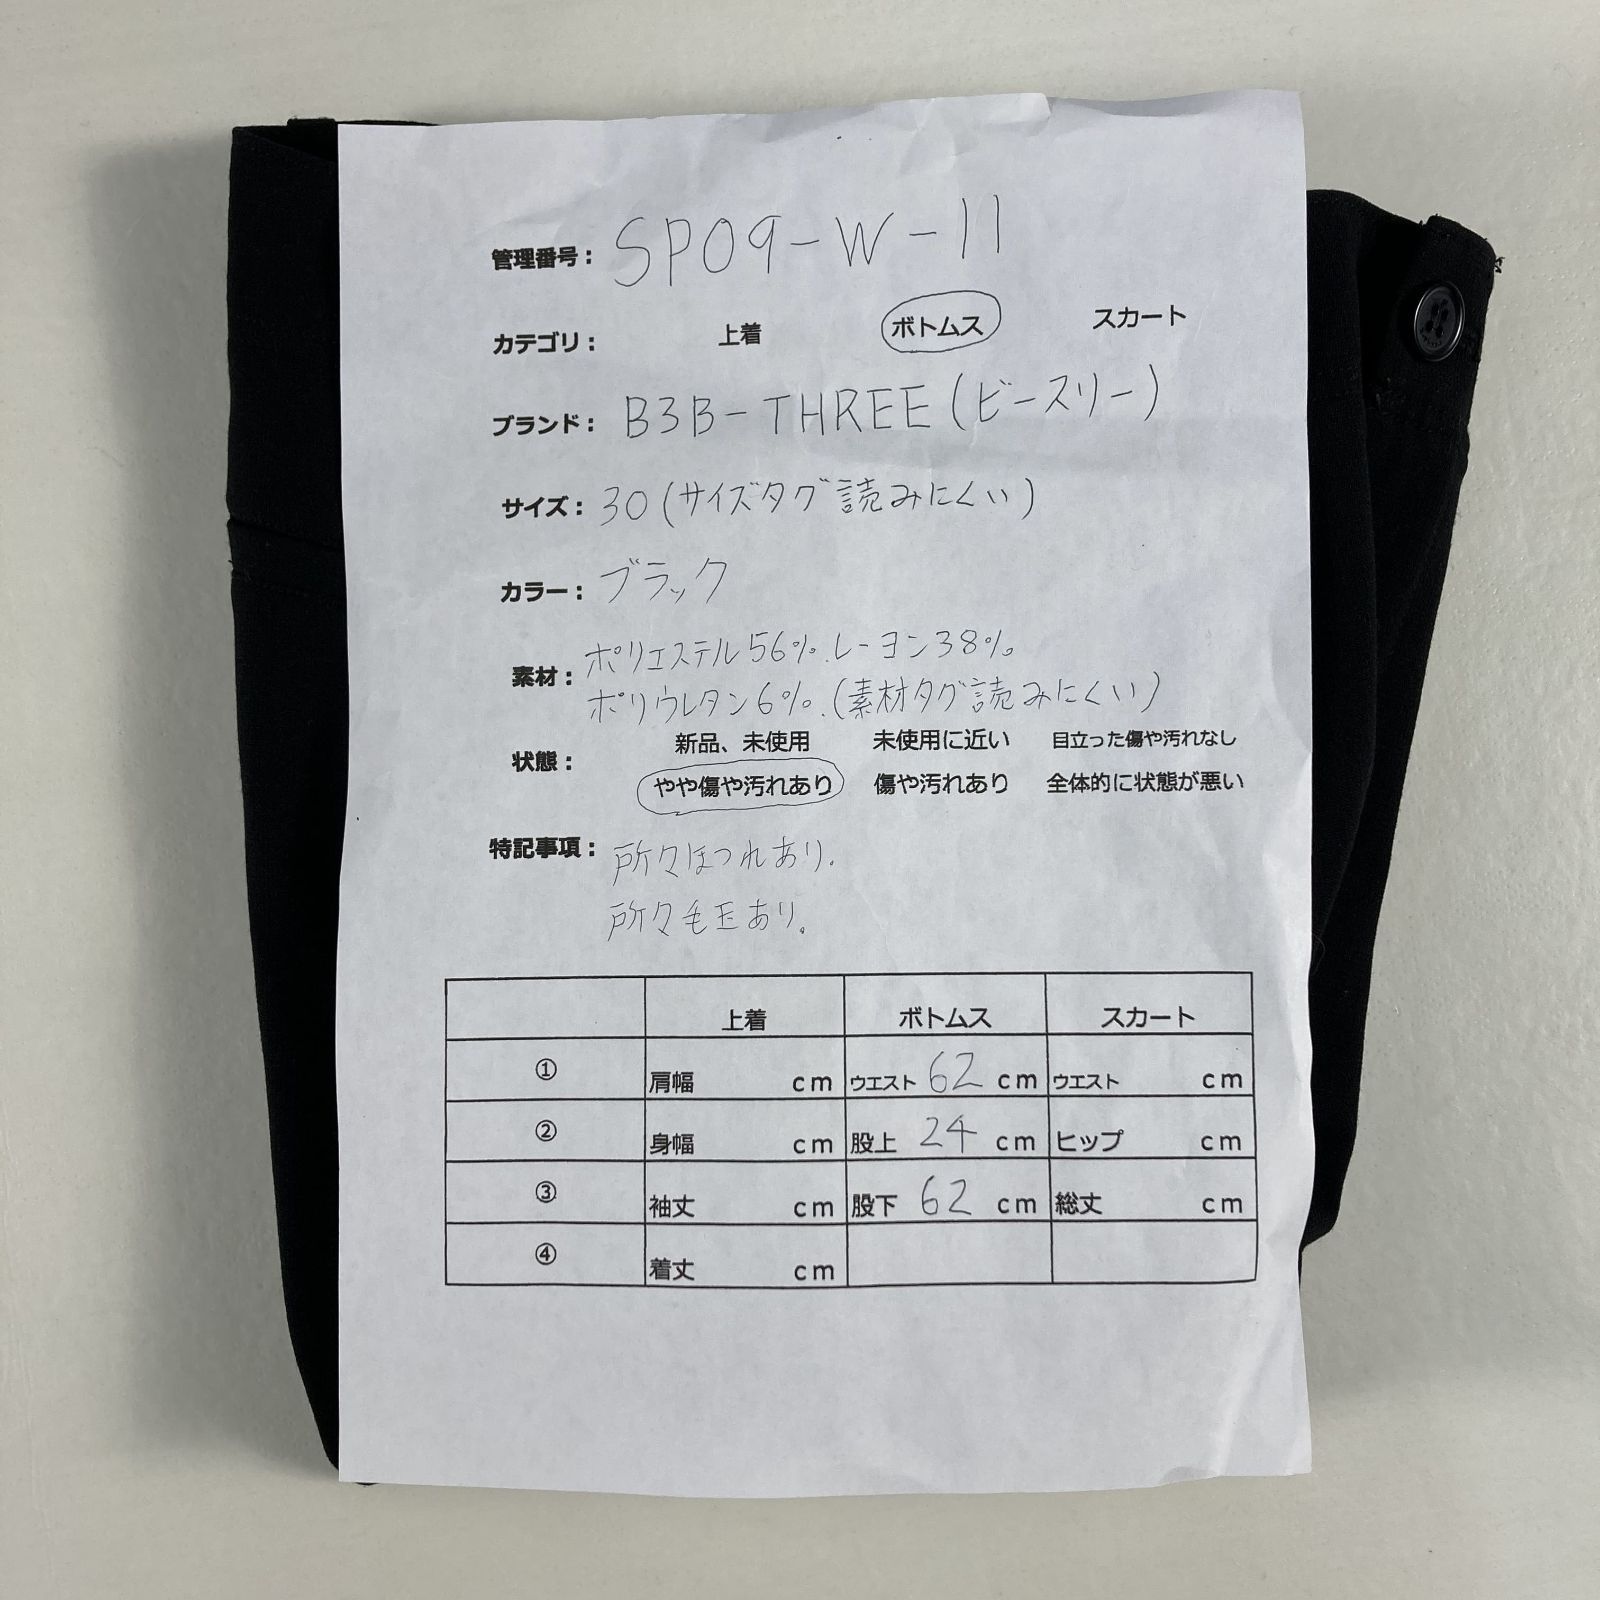 管理番号： SP09-W-11
カテゴリ： 上着 ボトムス スカート
ブランド： B3B-THREE(ビースリー)
サイズ： 30(サイズタグ読みにくい)
カラー： ブラック
素材： ポリエステル56%.レーヨン38%。
ポリウレタン6%.(素材タグ読みにくい)
状態： 新品、未使用 未使用に近い 目立った傷や汚れなし
やや傷や汚れあり 傷や汚れあり 全体的に状態が悪い
特記事項： 所々ほつれあり.
所々毛玉あり。
上着 ボトムス スカート
① 肩幅 cm ウエスト 62 cm ウエスト cm
② 身幅 cm 股上 24 cm ヒップ cm
③ 袖丈 cm 股下 62 cm 総丈 cm
④ 着丈 cm